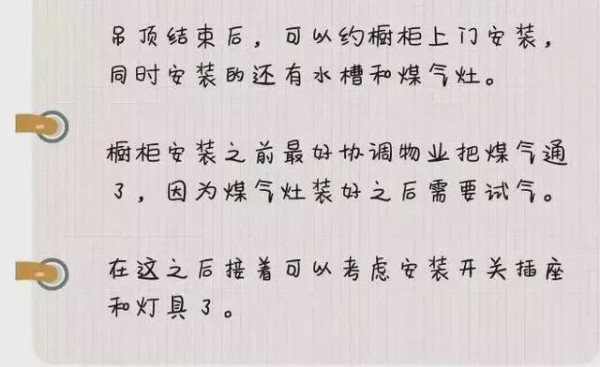 吊顶结束后，可以约橱柜上门安装，
同时安装的还有水槽和煤气灶。
橱柜安装之前最好协调物业把煤气通
了，因为煤气灶装好之后需要试气。
在这之后接着可以考虑安装开关插座
和灯具了。